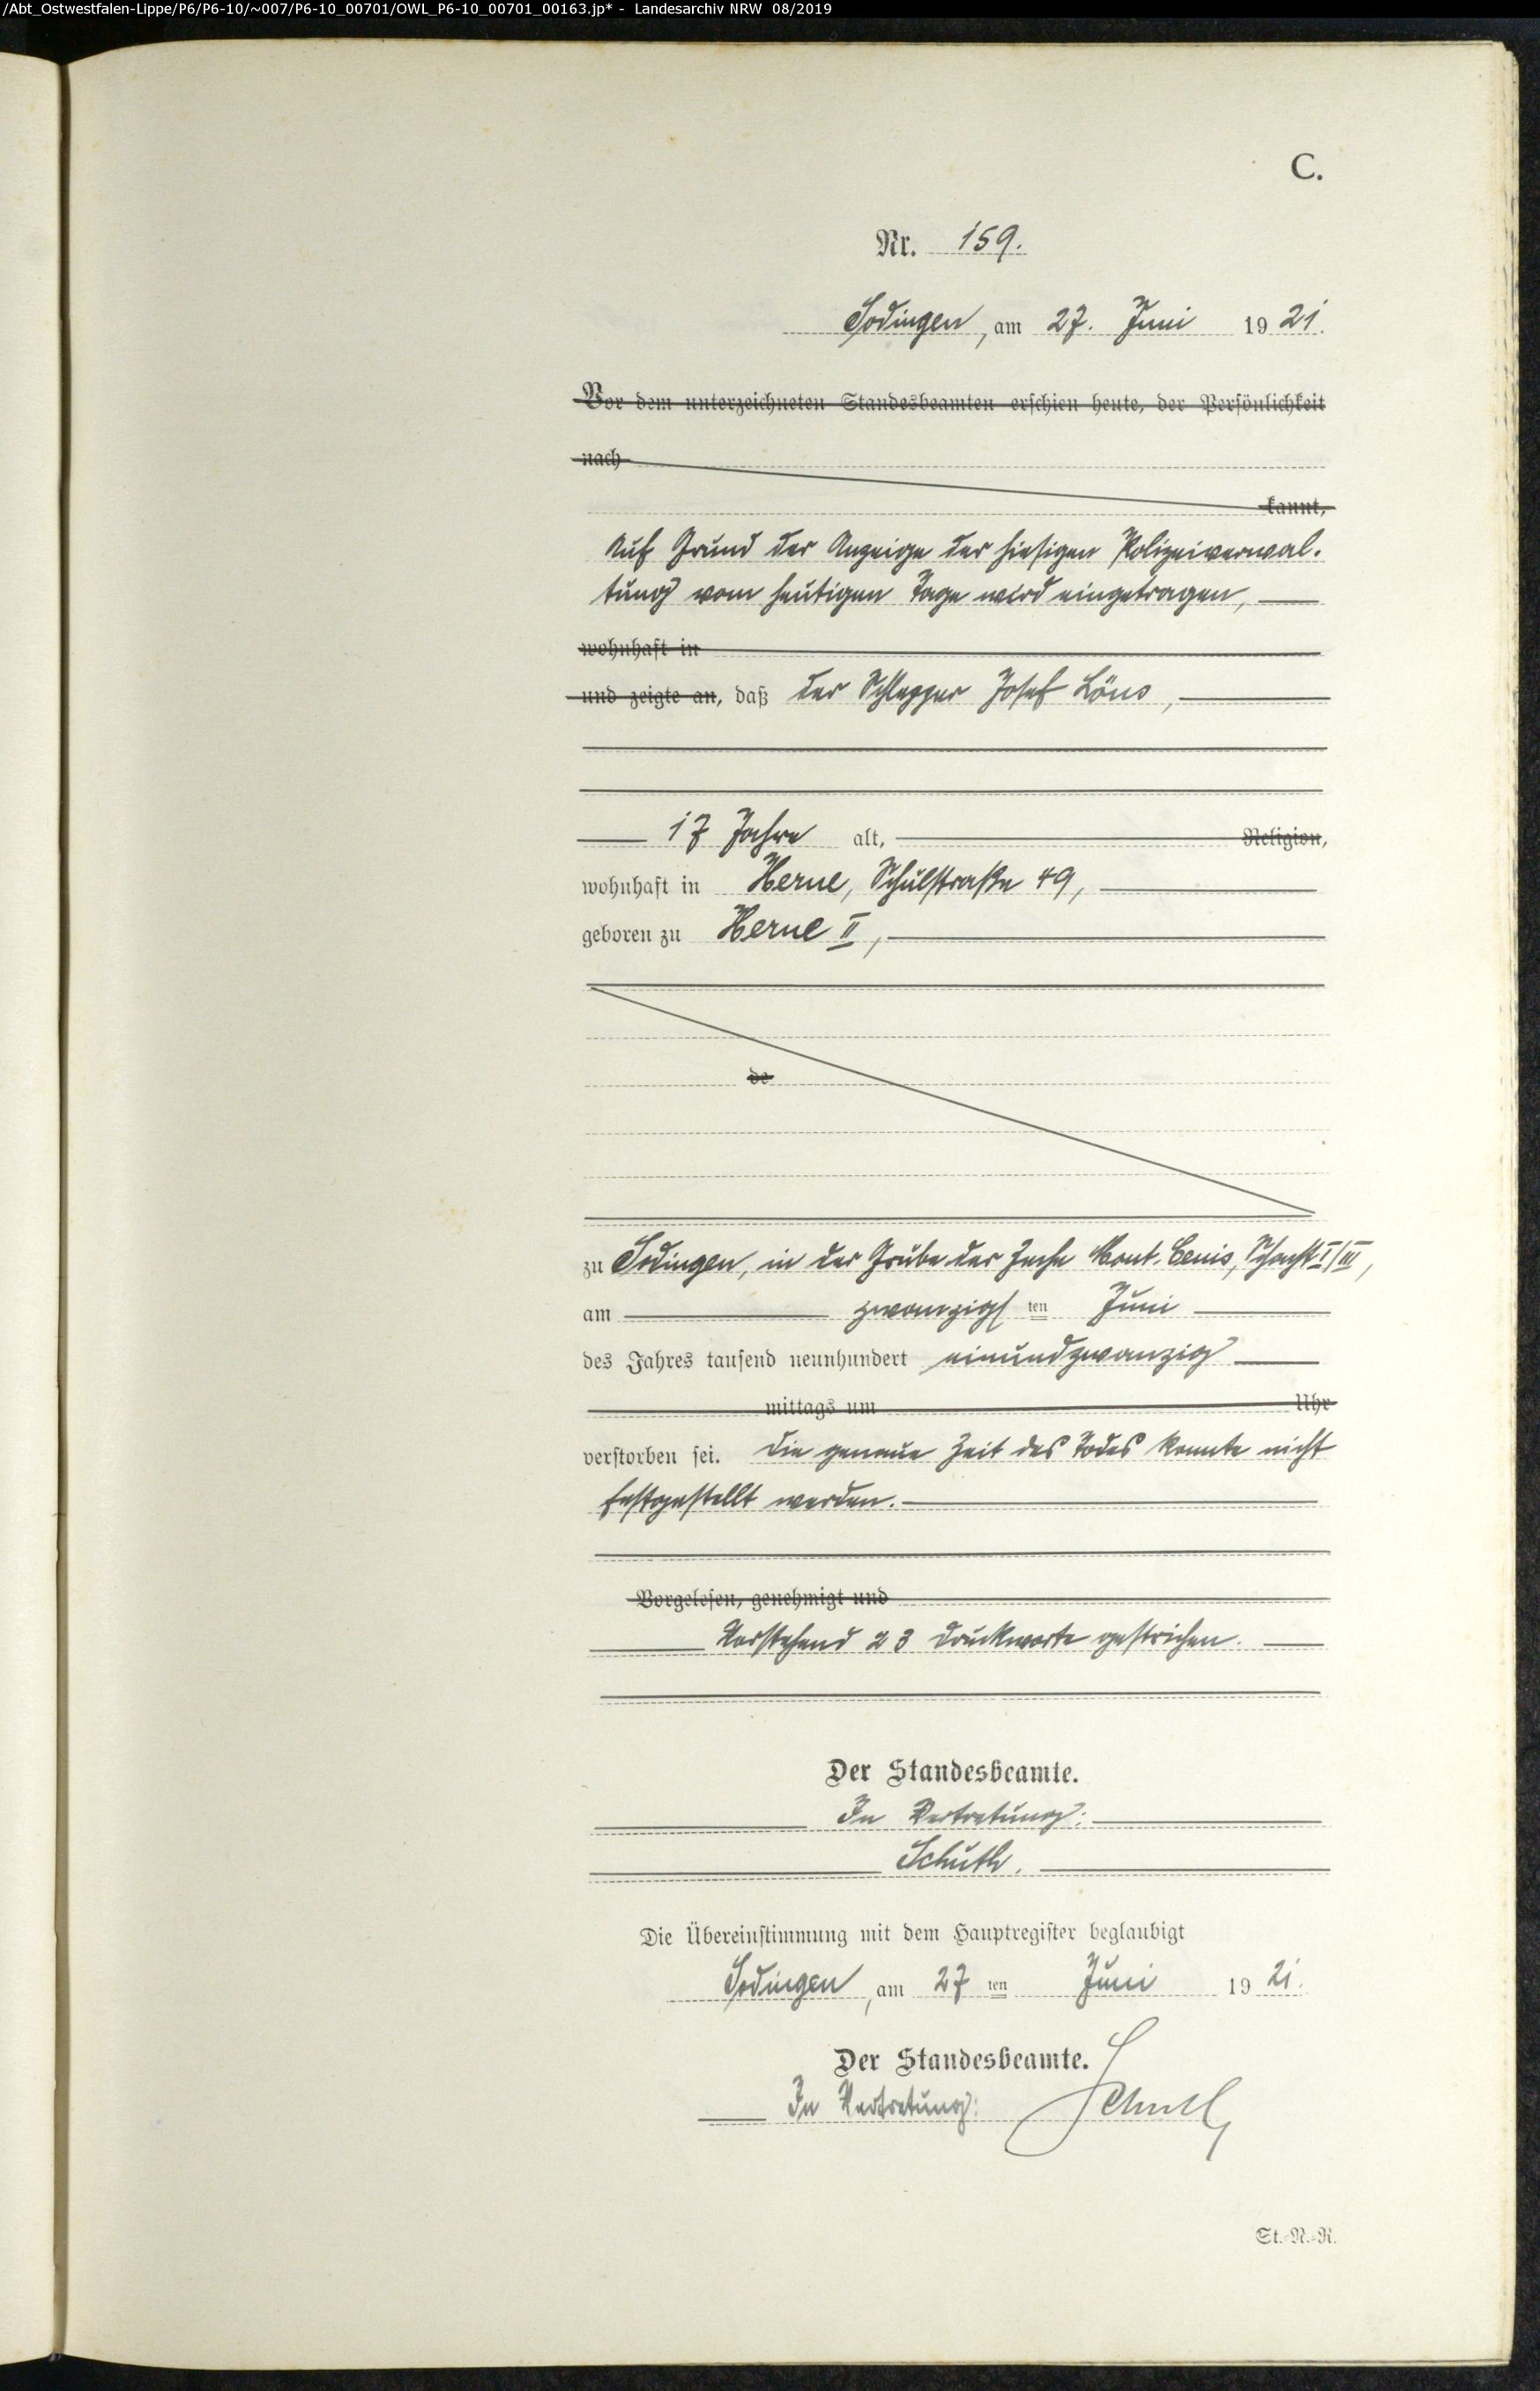 /Abt_Ostwestfalen-Lippe/P6/P6-10/~007/P6-10_00701/OWL_P6-10_00701_00163.jp* - Landesarchiv NRW 08/2019
C.
Nr. 159.
Sodingen, am 27. Juni 1921.
Vor dem unterzeichneten Standesbeamten erschien heute, der Persönlichkeit
nach
kannt,
Auf Grund der Anzeige der hiesigen Polizeiverwal-
tung vom heutigen Tage wird eingetragen,
wohnhaft in
und zeigte an, daß der Schlepper Josef Löns,
17 Jahre alt, Religion,
wohnhaft in Herne, Schulstraße 49,
geboren zu Herne II,
de
zu Sodingen, in der Grube der Zeche Mont-Cenis, Schacht I/III,
am zwanzigsten Juni
des Jahres tausend neunhundert einundzwanzig
mittags um Uhr
verstorben sei. Die genaue Zeit des Todes konnte nicht
festgestellt werden.
Vorgelesen, genehmigt und
Vorstehend 23 Druckworte gestrichen.
Der Standesbeamte.
In Vertretung:
Schuth.
Die Übereinstimmung mit dem Hauptregister beglaubigt
Sodingen, am 27ten Juni 1921.
Der Standesbeamte.
In Vertretung: Schuth
St.-N.-R.